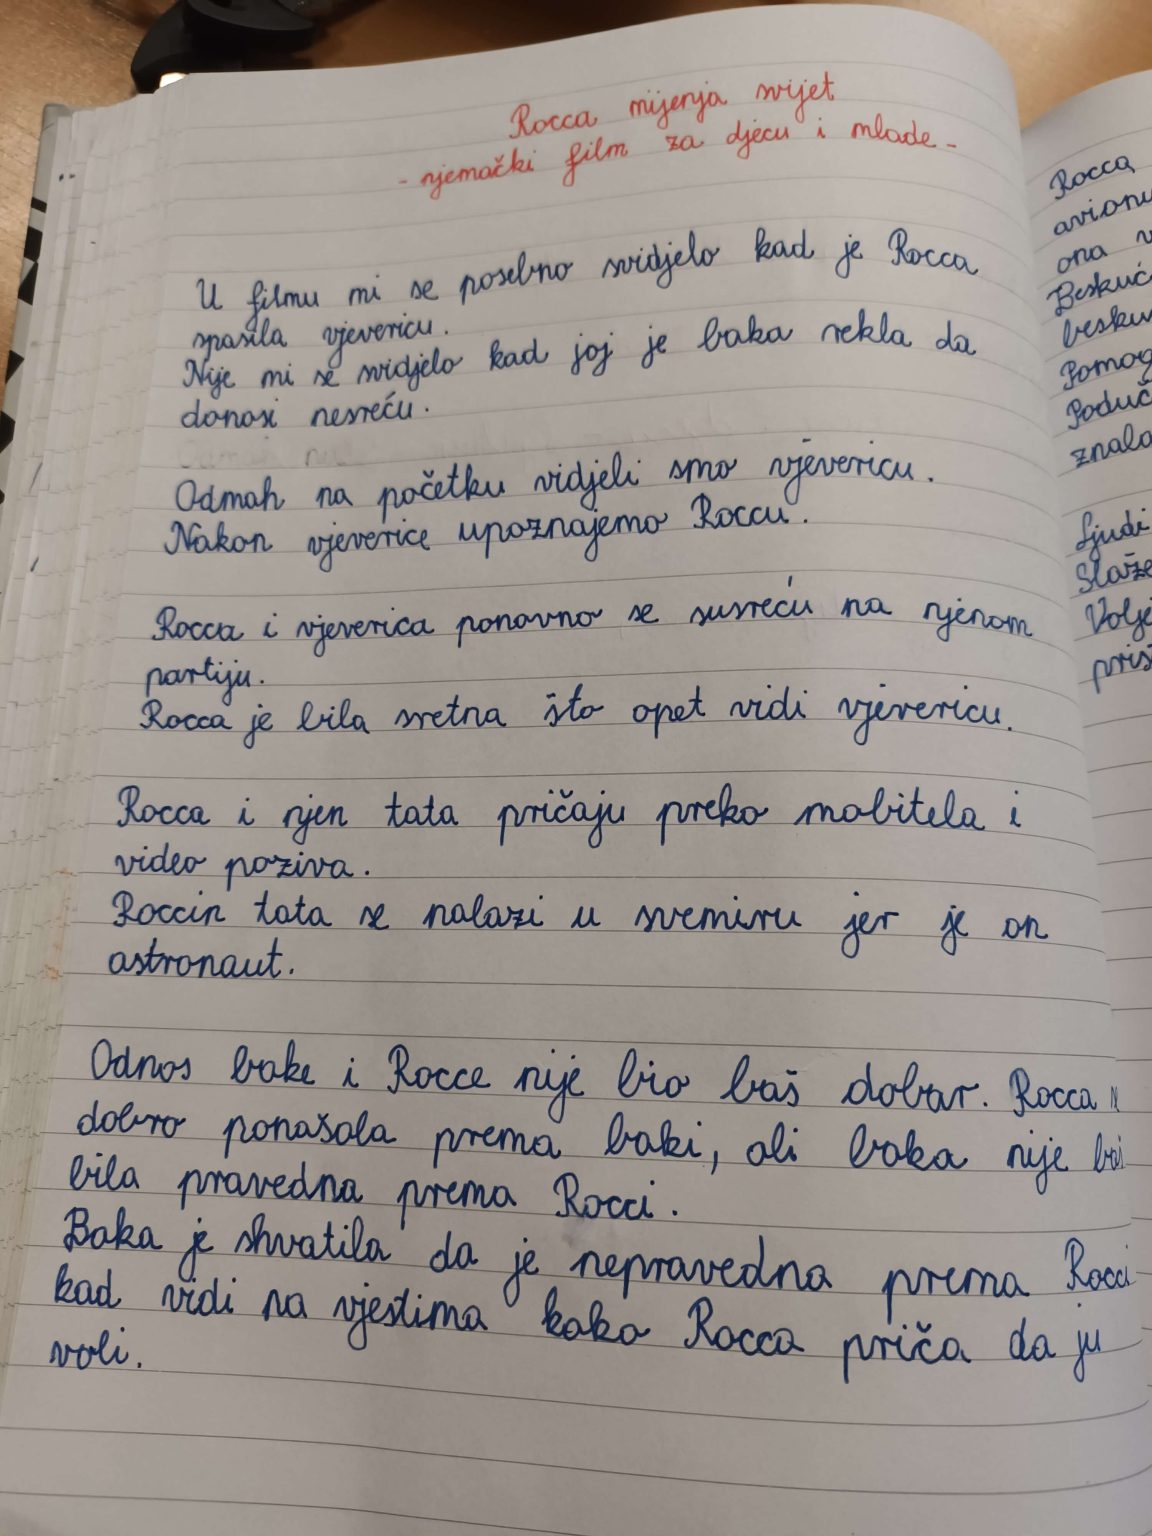 Rocca mijenja svijet
- njemački film za djecu i mlade -
U filmu mi se posebno svidjelo kad je Rocca
spasila vjevericu.
Nije mi se svidjelo kad joj je baka rekla da
donosi nesreću.
Odmah na početku vidjeli smo vjevericu.
Nakon vjeverice upoznajemo Roccu.
Rocca i vjeverica ponovno se susreću na njenom
partiju.
Rocca je bila sretna što opet vidi vjevericu.
Rocca i njen tata pričaju preko mobitela i
video poziva.
Roccin tata se nalazi u svemiru jer je on
astronaut.
Odnos bake i Rocce nije bio baš dobar. Rocca
dobro ponašala prema baki, ali baka nije baš
bila pravedna prema Rocci.
Baka je shvatila da je nepravedna prema Rocci
kad vidi na vjestima kako Rocca priča da ju
voli.
Rocca
avionu
ona
Pomog
Poduč
znala
Ljudi
Slaže
Volje
priš